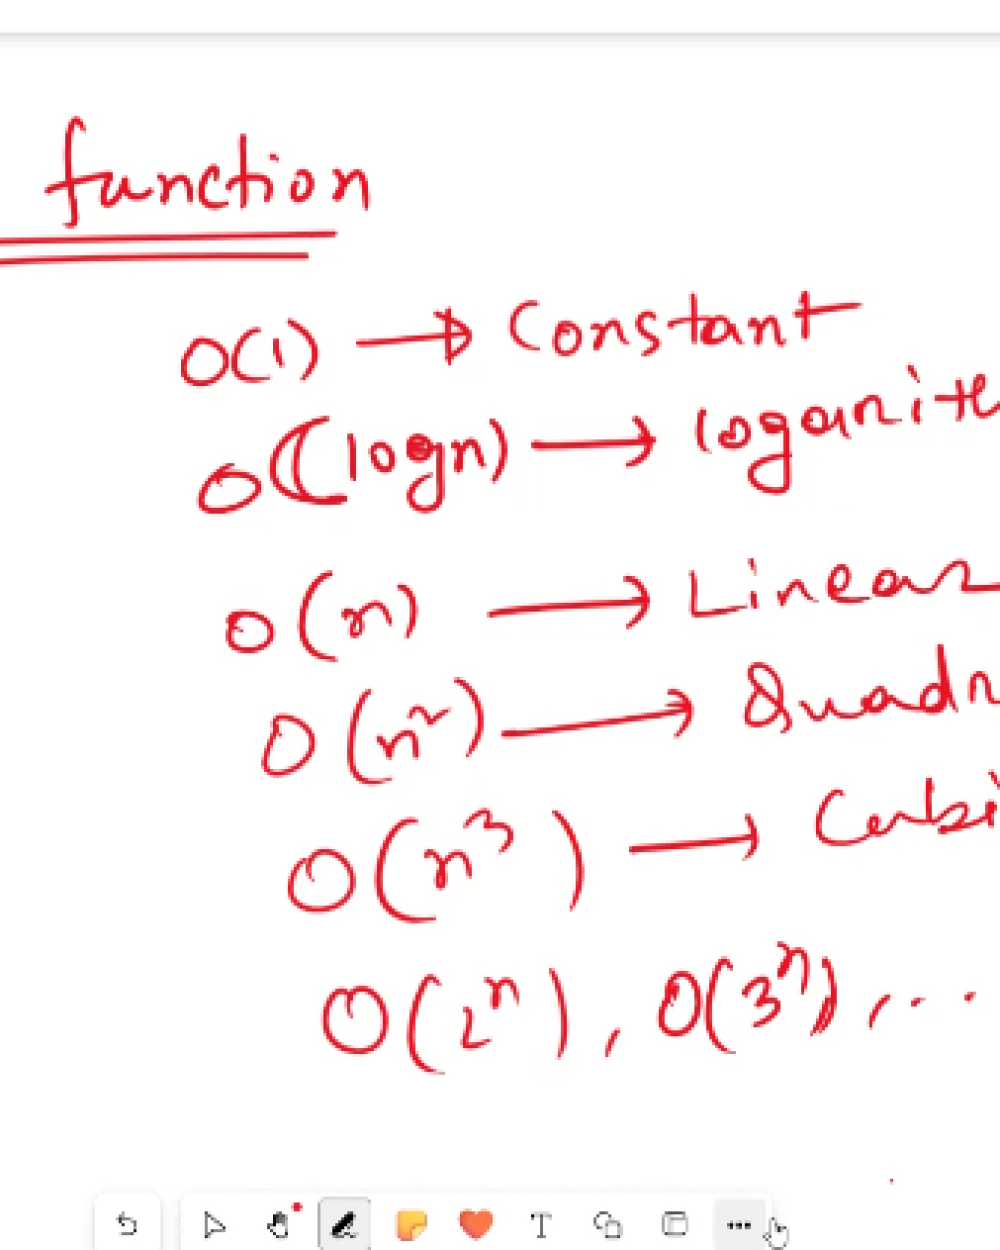 function
O(1) → Constant
O(logn) → logarit
O(n) → Linear
O(n²) → Quadr
O(n³) → Cubi
O(2ⁿ), O(3ⁿ), ...
T